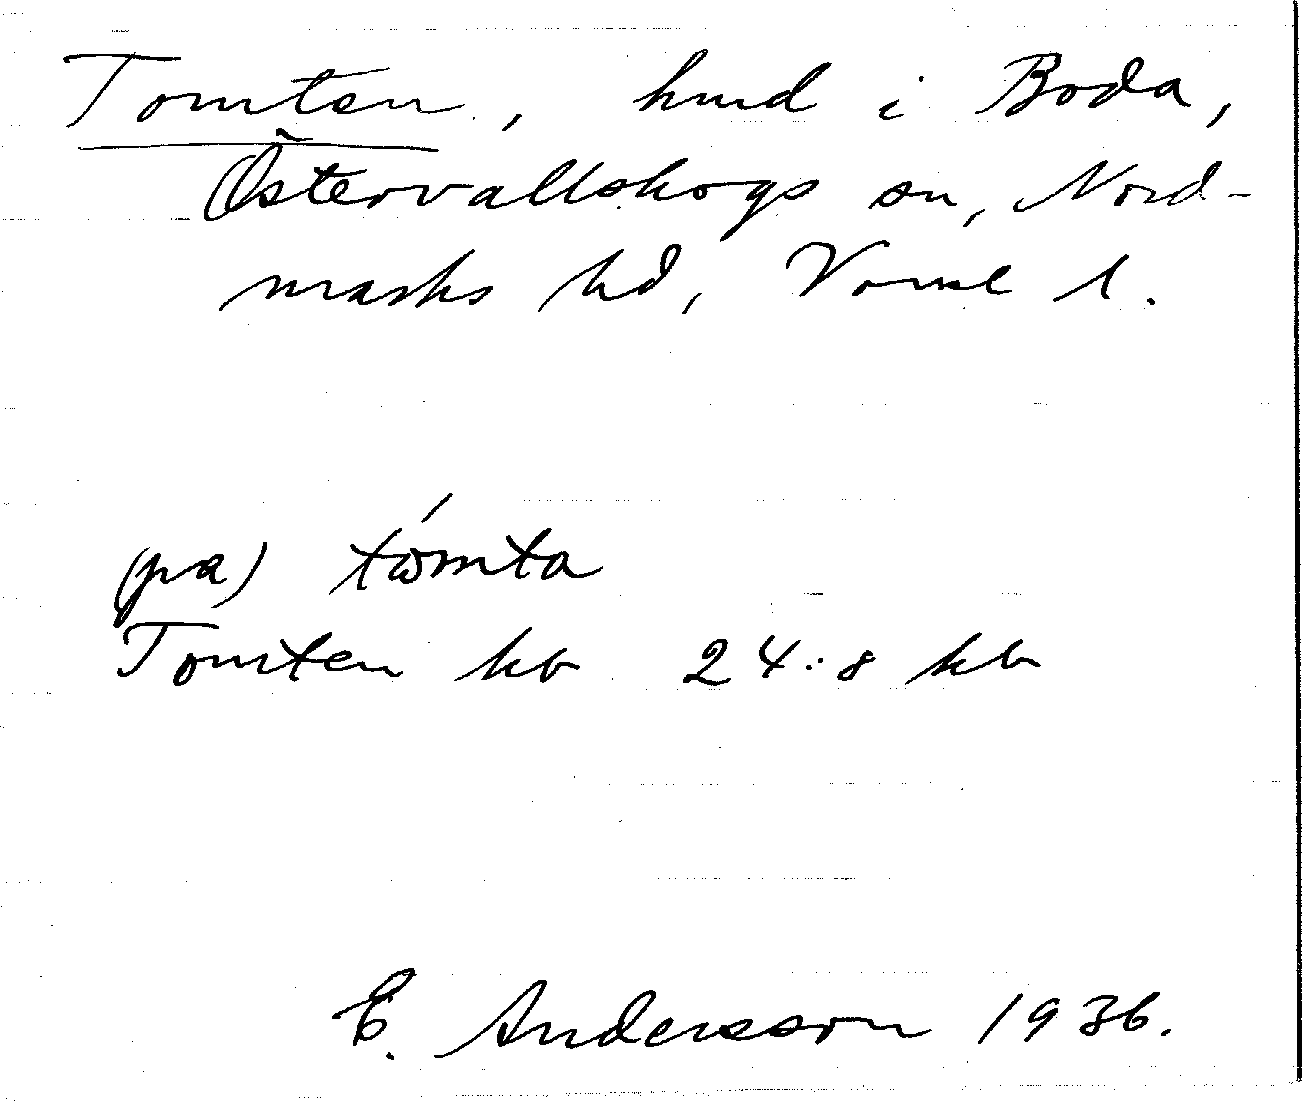 Tomten, hmd i Boda,
Östervallskogs sn, Nord-
marks hd, Värml l.
(på) tómta
Tomten kb 24:8 kb
E. Andersson 1936.